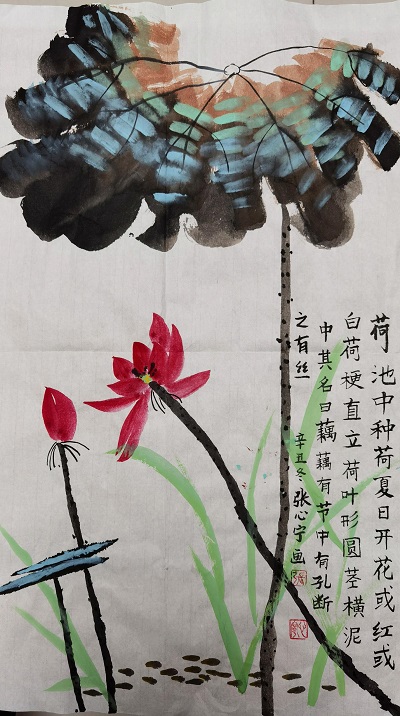 荷池中种荷夏日开花或红或
白荷梗直立荷叶形圆茎横泥
中其名曰藕藕有节中有孔断
之有丝
辛丑冬张心宁画